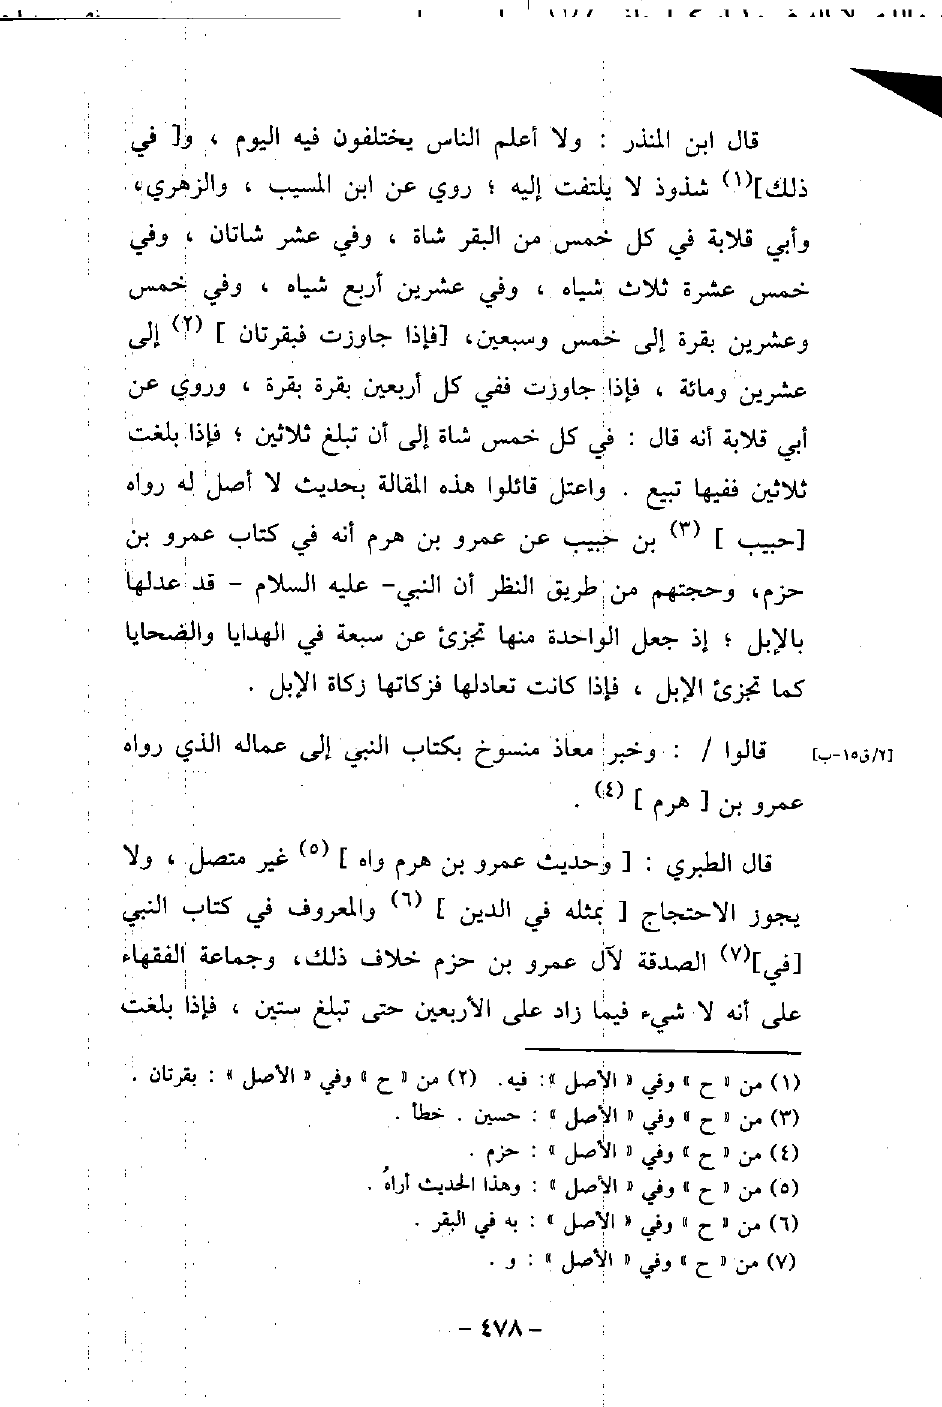 قال ابن المنذر : ولا أعلم الناس يختلفون فيه اليوم ، و[ في
ذلك](١) شذوذ لا يلتفت إليه ؛ روي عن ابن المسيب ، والزهري،
وأبي قلابة في كل خمس من البقر شاة ، وفي عشر شاتان ، وفي
خمس عشرة ثلاث شياه ، وفي عشرين أربع شياه ، وفي خمس
وعشرين بقرة إلى خمس وسبعين، [فإذا جاوزت فبقرتان ] (٢) إلى
عشرين ومائة ، فإذا جاوزت ففي كل أربعين بقرة بقرة ، وروي عن
أبي قلابة أنه قال : في كل خمس شاة إلى أن تبلغ ثلاثين ؛ فإذا بلغت
ثلاثين ففيها تبيع . واعتل قائلوا هذه المقالة بحديث لا أصل له رواه
[حبيب ] (٣) بن حبيب عن عمرو بن هرم أنه في كتاب عمرو بن
حزم، وحجتهم من طريق النظر أن النبي- عليه السلام - قد عدلها
بالإبل ؛ إذ جعل الواحدة منها تجزئ عن سبعة في الهدايا والضحايا
كما تجزئ الإبل ، فإذا كانت تعادلها فزكاتها زكاة الإبل .
قالوا / : وخبر معاذ منسوخ بكتاب النبي إلى عماله الذي رواه
[٢/ق١٥-ب]
عمرو بن [ هرم ] (٤) .
قال الطبري : [ وحديث عمرو بن هرم واه ] (٥) غير متصل ، ولا
يجوز الاحتجاج [ بمثله في الدين ] (٦) والمعروف في كتاب النبي
[في](٧) الصدقة لآل عمرو بن حزم خلاف ذلك، وجماعة الفقهاء
على أنه لا شيء فيما زاد على الأربعين حتى تبلغ ستين ، فإذا بلغت
(١) من « ح » وفي « الأصل »: فيه. (٢) من « ح » وفي « الأصل » : بقرتان .
(٣) من « ح » وفي « الأصل » : حسين . خطأ .
(٤) من « ح » وفي « الأصل » : حزم .
(٥) من « ح » وفي « الأصل » : وهذا الحديث أراهُ .
(٦) من « ح » وفي « الأصل » : به في البقر .
(٧) من « ح » وفي « الأصل » : و .
- ٤٧٨ -